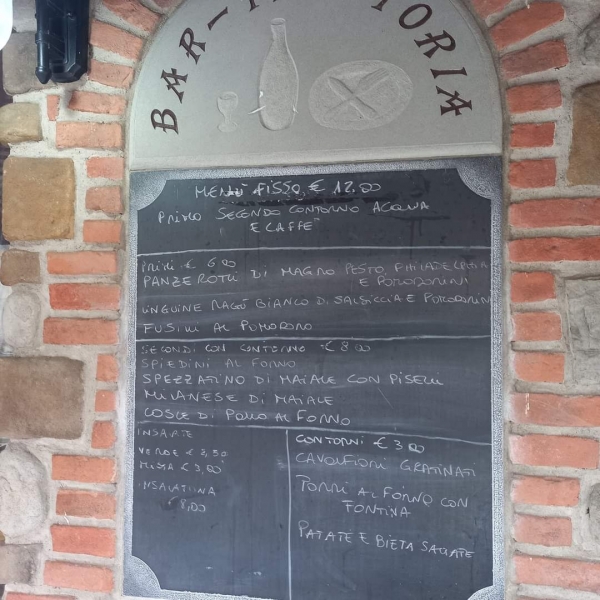 BAR-TRATTORIA
MENÙ FISSO, € 12.00
PRIMO SECONDO CONTORNO ACQUA
E CAFFE'
PRIMI € 6.00
PANZEROTTI DI MAGRO PESTO, PHILADELPHIA
E POMODORINI
LINGUINE RAGÙ BIANCO DI SALSICCIA E POMODORINI
FUSILLI AL POMODORO
SECONDI CON CONTORNO € 8.00
SPIEDINI AL FORNO
SPEZZATINO DI MAIALE CON PISELLI
MILANESE DI MAIALE
COSCE DI POLLO AL FORNO
INSALATE
VERDE € 2,50
MISTA € 3,00
INSALATONA
€ 8,00
CONTORNI € 3.00
CAVOLFIORI GRATINATI
PORRI AL FORNO CON
FONTINA
PATATE E BIETA SALTATE